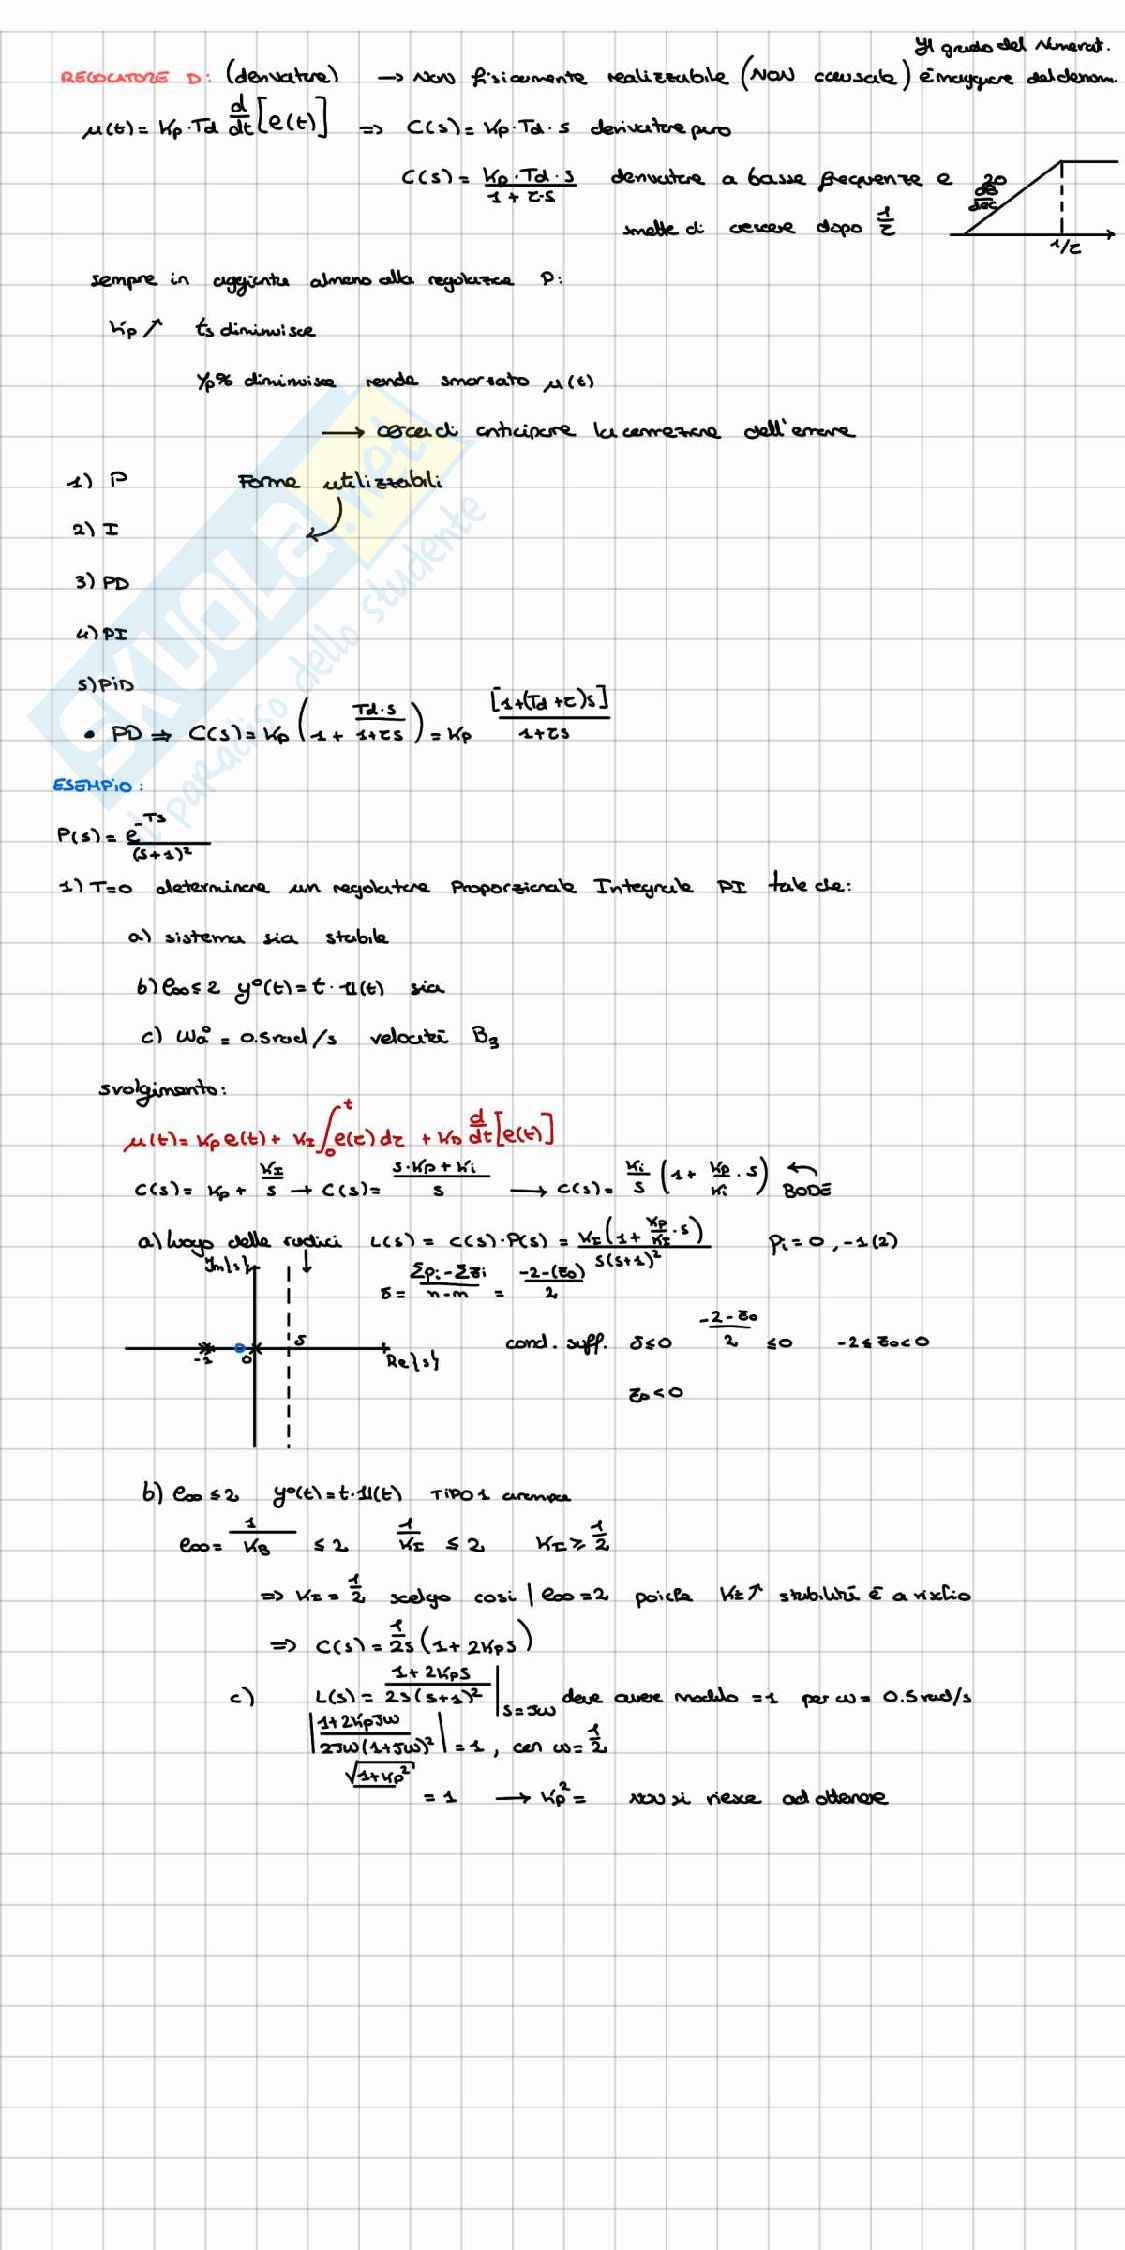 Il grado del Numerat.
REGOLATORE D: (derivatore) → NON fisicamente realizzabile (NON causale) è maggiore del denom.
μ(t) = Kp·Td d/dt [e(t)] ⇒ C(s) = Kp·Td·s derivatore puro
C(s) = Kp·Td·s / 1+τ·s derivatore a basse frequenze e
smette di crescere dopo 1/τ
20 dB/dec
1/τ
sempre in aggiunta almeno alla regolatrice P:
Kp ↗ ts diminuisce
Yp% diminuisce rende smorzato μ(t)
→ cerca di anticipare la correzione dell'errore
1) P Forme utilizzabili
2) I
3) PD
4) PI
5) PiD
• PD ⇒ C(s) = Kp (1 + Td·s / 1+τs) = Kp [1+(Td+τ)s] / 1+τs
ESEMPiO:
P(s) = e^-Ts / (s+1)²
1) T=0 determinare un regolatore Proporzionale Integrale PI tale che:
a) sistema sia stabile
b) e∞ ≤ 2 y°(t) = t·1(t) sia
c) ωa° = 0.5 rad/s velocità B3
svolgimento:
μ(t) = Kp e(t) + KI ∫0^t e(τ) dτ + KD d/dt [e(t)]
C(s) = Kp + KI/s → C(s) = s·Kp + Ki / s → C(s) = Ki/s (1 + Kp/Ki · s) BODE
a) luogo delle radici L(s) = C(s)·P(s) = KI (1 + Kp/KI · s) / s(s+1)² Pi = 0, -1(2)
Im{s} δ = Σpi - Σzi / n-m = -2-(z0) / 2
-1 0 δ Re{s} cond. suff. δ ≤ 0 -2-z0 / 2 ≤ 0 -2 ≤ z0 < 0
z0 < 0
b) e∞ ≤ 2 y°(t) = t·1(t) TIPO 1 rampa
e∞ = 1/KB ≤ 2 1/KI ≤ 2 KI ≥ 1/2
⇒ KI = 1/2 scelgo così | e∞ = 2 poiché KI ↗ stabilità è a rischio
⇒ C(s) = 1/2s (1 + 2Kps)
c) L(s) = 1+2Kps / 2s(s+1)² |s=jω deve avere modulo = 1 per ω = 0.5 rad/s
|1+2Kpjω / 2jω(1+jω)²| = 1, con ω = 1/2
√1+Kp² = 1 → Kp² = non si riesce ad ottenere
SKUOLA.net
il paradiso dello studente